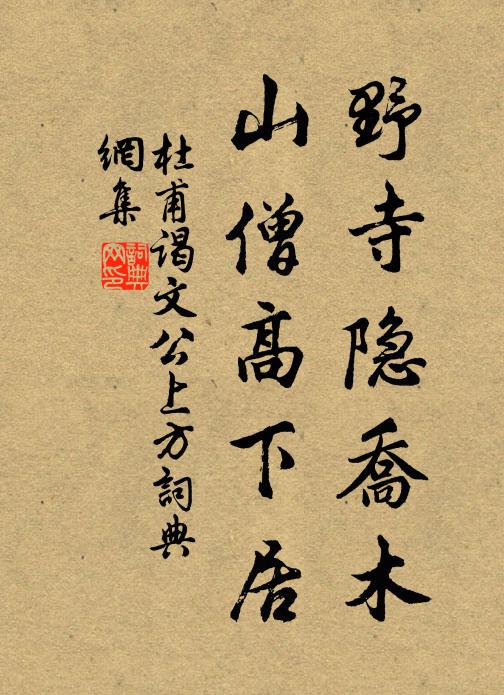 野寺隐喬木
山僧高下居
杜甫谒文公上方詞典
網集
詞典
网印